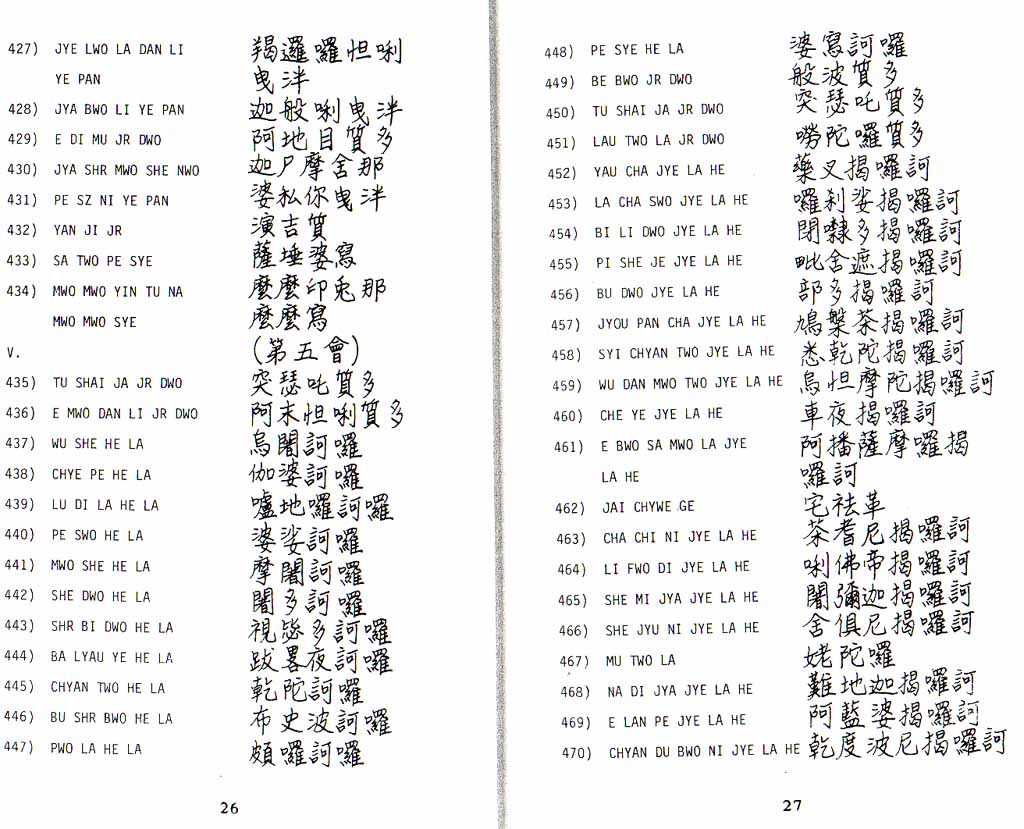 427) JYE LWO LA DAN LI 羯邏囉怛唎
YE PAN 曳泮
428) JYA BWO LI YE PAN 迦般唎曳泮
429) E DI MU JR DWO 阿地目質多
430) JYA SHR MWO SHE NWO 迦尸摩舍那
431) PE SZ NI YE PAN 婆私你曳泮
432) YAN JI JR 演吉質
433) SA TWO PE SYE 薩埵婆寫
434) MWO MWO YIN TU NA 麼麼印兔那
MWO MWO SYE 麼麼寫
V. (第五會)
435) TU SHAI JA JR DWO 突瑟吒質多
436) E MWO DAN LI JR DWO 阿末怛唎質多
437) WU SHE HE LA 烏闍訶囉
438) CHYE PE HE LA 伽婆訶囉
439) LU DI LA HE LA 嚧地囉訶囉
440) PE SWO HE LA 婆娑訶囉
441) MWO SHE HE LA 摩闍訶囉
442) SHE DWO HE LA 闍多訶囉
443) SHR BI DWO HE LA 視毖多訶囉
444) BA LYAU YE HE LA 跋畧夜訶囉
445) CHYAN TWO HE LA 乾陀訶囉
446) BU SHR BWO HE LA 布史波訶囉
447) PWO LA HE LA 頗囉訶囉
26
448) PE SYE HE LA 婆寫訶囉
449) BE BWO JR DWO 般波質多
450) TU SHAI JA JR DWO 突瑟吒質多
451) LAU TWO LA JR DWO 嘮陀囉質多
452) YAU CHA JYE LA HE 藥叉揭囉訶
453) LA CHA SWO JYE LA HE 囉剎娑揭囉訶
454) BI LI DWO JYE LA HE 閉㘑多揭囉訶
455) PI SHE JE JYE LA HE 毗舍遮揭囉訶
456) BU DWO JYE LA HE 部多揭囉訶
457) JYOU PAN CHA JYE LA HE 鳩槃茶揭囉訶
458) SYI CHYAN TWO JYE LA HE 悉乾陀揭囉訶
459) WU DAN MWO TWO JYE LA HE 烏怛摩陀揭囉訶
460) CHE YE JYE LA HE 車夜揭囉訶
461) E BWO SA MWO LA JYE 阿播薩摩囉揭
LA HE 囉訶
462) JAI CHYWE GE 宅袪革
463) CHA CHI NI JYE LA HE 茶耆尼揭囉訶
464) LI FWO DI JYE LA HE 唎佛帝揭囉訶
465) SHE MI JYA JYE LA HE 闍彌迦揭囉訶
466) SHE JYU NI JYE LA HE 舍俱尼揭囉訶
467) MU TWO LA 姥陀囉
468) NA DI JYA JYE LA HE 難地迦揭囉訶
469) E LAN PE JYE LA HE 阿藍婆揭囉訶
470) CHYAN DU BWO NI JYE LA HE 乾度波尼揭囉訶
27